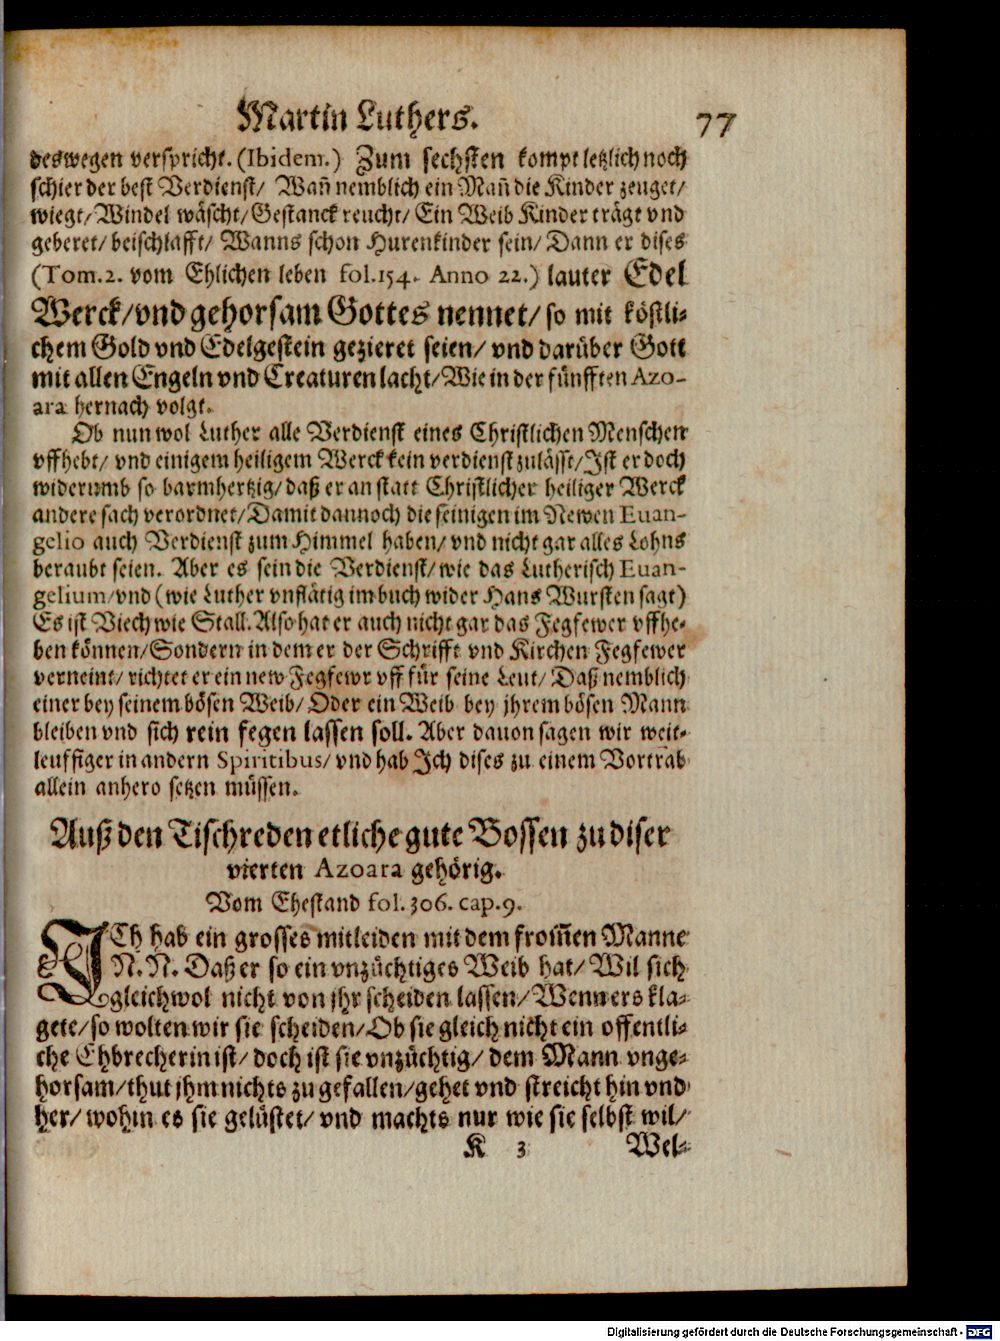 Martin Luthers. 77
deswegen verspricht. (Ibidem.) Zum sechsten kompt letzlich noch
schier der best Verdienst/ Wañ nemblich ein Mañ die Kinder zeuget/
wiegt/ Windel wäscht/ Gestanck reucht/ Ein Weib Kinder trägt vnd
geberet/ beischlafft/ Wanns schon Hurenkinder sein/ Dann er dises
(Tom.2. vom Ehlichen leben fol.154. Anno 22.) lauter Edel
Werck/ vnd gehorsam Gottes nennet/ so mit köstli-
chem Gold vnd Edelgestein gezieret seien/ vnd darüber Gott
mit allen Engeln vnd Creaturen lacht/ Wie in der fünfften Azo-
ara hernach volgt.
Ob nun wol Luther alle Verdienst eines Christlichen Menschen
vffhebt/ vnd einigem heiligem Werck kein verdienst zulässt/ Ist er doch
widerumb so barmhertzig/ daß er an statt Christlicher heiliger Werck
andere sach verordnet/ Damit dannoch die seinigen im Newen Euan-
gelio auch Verdienst zum Himmel haben/ vnd nicht gar alles Lohns
beraubt seien. Aber es sein die Verdienst/ wie das Lutherisch Euan-
gelium/ vnd (wie Luther vnflätig im buch wider Hans Wursten sagt)
Es ist Viech wie Stall. Also hat er auch nicht gar das Fegfewer vffhe-
ben können/ Sondern in dem er der Schrifft vnd Kirchen Fegfewer
verneint/ richtet er ein new Fegfewr vff für seine Leut/ Daß nemblich
einer bey seinem bösen Weib/ Oder ein Weib bey jhrem bösen Mann
bleiben vnd sich rein fegen lassen soll. Aber dauon sagen wir weit-
leuffiger in andern Spiritibus/ vnd hab Ich dises zu einem Vortrab
allein anhero setzen müssen.
Auß den Tischreden etliche gute Bossen zu diser
vierten Azoara gehörig.
Vom Ehestand fol.306. cap.9.
ICh hab ein grosses mitleiden mit dem from̃en Manne
N. N. Daß er so ein vnzüchtiges Weib hat/ Wil sich
gleichwol nicht von jhr scheiden lassen/ Wenn ers kla-
gete/ so wolten wir sie scheiden/ Ob sie gleich nicht ein offentli-
che Ehbrecherin ist/ doch ist sie vnzüchtig/ dem Mann vnge-
horsam/ thut jhm nichts zu gefallen/ gehet vnd streicht hin vnd
her/ wohin es sie gelüstet/ vnd machts nur wie sie selbst wil/
K 3 Wel-
Digitalisierung gefördert durch die Deutsche Forschungsgemeinschaft - DFG